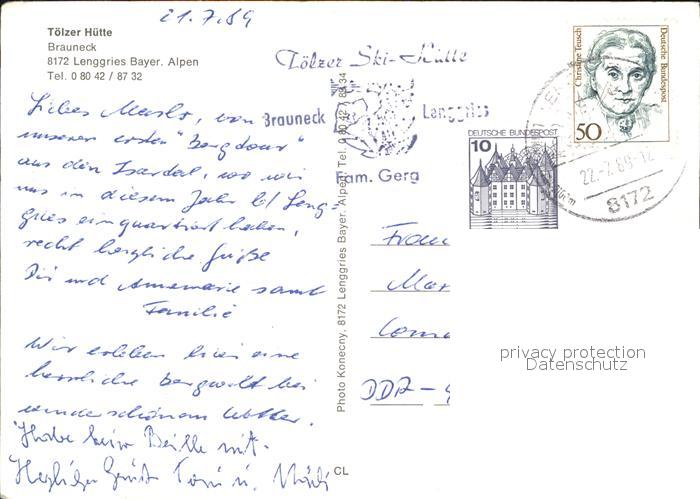 21.7.89
Tölzer Hütte
Brauneck
8172 Lenggries Bayer. Alpen
Tel. 0 80 42 / 87 32
Tölzer Ski-Hütte
Brauneck Lenggries
Fam. Gerg
Christine Teusch
Deutsche Bundespost
50
DEUTSCHE BUNDESPOST
10
22.-7.89-12
8172
von
unserer ersten "Bergtour"
aus dem Isartal, wo wir
uns in diesem Jahr b/ Leng-
gries einquartiert haben,
recht herzliche Grüße
Dir und Annemarie samt
Familie
Wir erleben hier eine
herrliche Bergwelt bei
wunderschönem Wetter.
Habe keine Brille mit.
Herzlichen Gruß Toni u.
Photo Konecny, 8172 Lenggries Bayer. Alpen, Tel. 0 80 42 / 87 84 34
CL
DDR-
privacy protection
Datenschutz